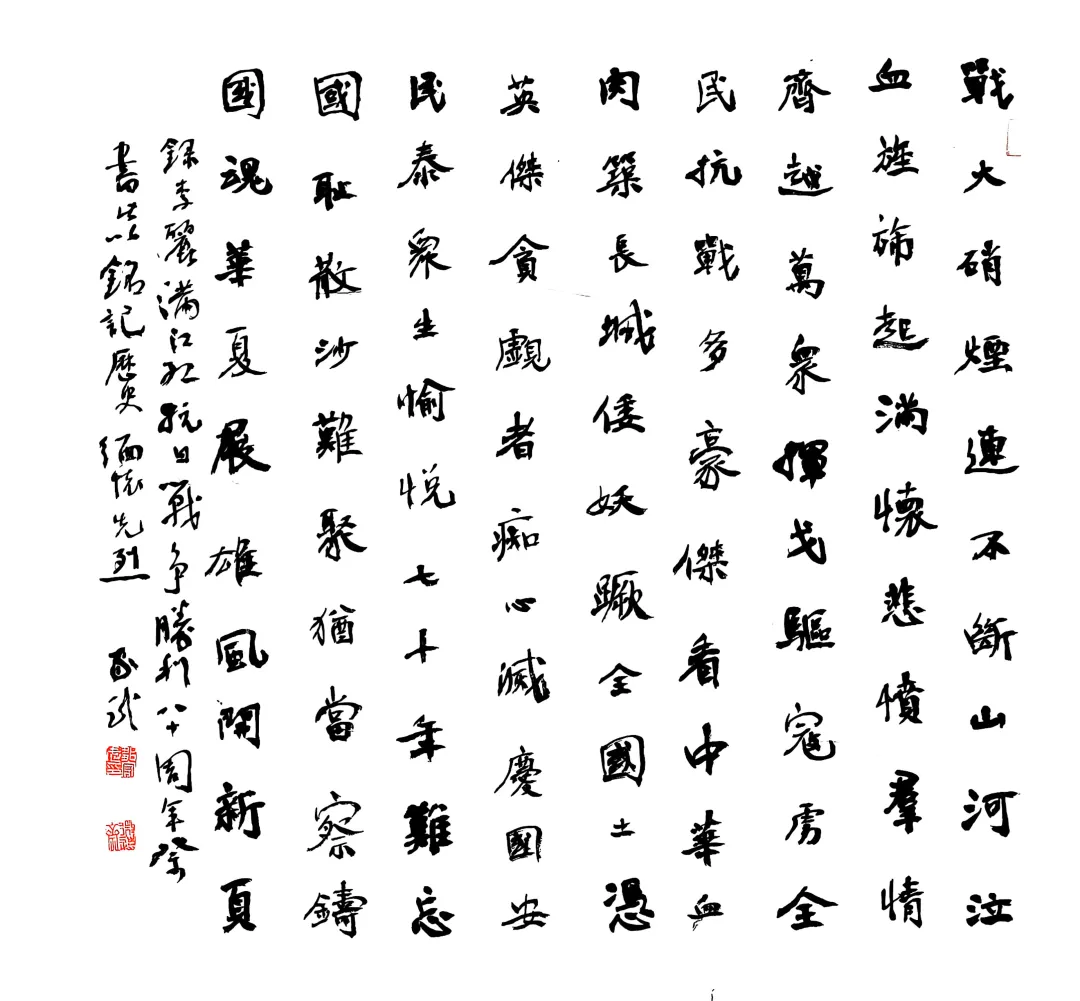 戰火硝煙連不斷山河泣
血旌旆起滿懷悲憤羣情
齊越萬眾揮戈驅寇虜全
民抗戰多豪傑看中華血
肉築長城倭妖蹶全國土憑
英傑貪覷者痴心滅慶國安
民泰眾生愉悅七十年難忘
國恥散沙難聚猶當察鑄
國魂華夏展雄風開新頁
錄李麗滿江紅抗日戰爭勝利八十周年祭
書此以銘記歷史緬懷先烈